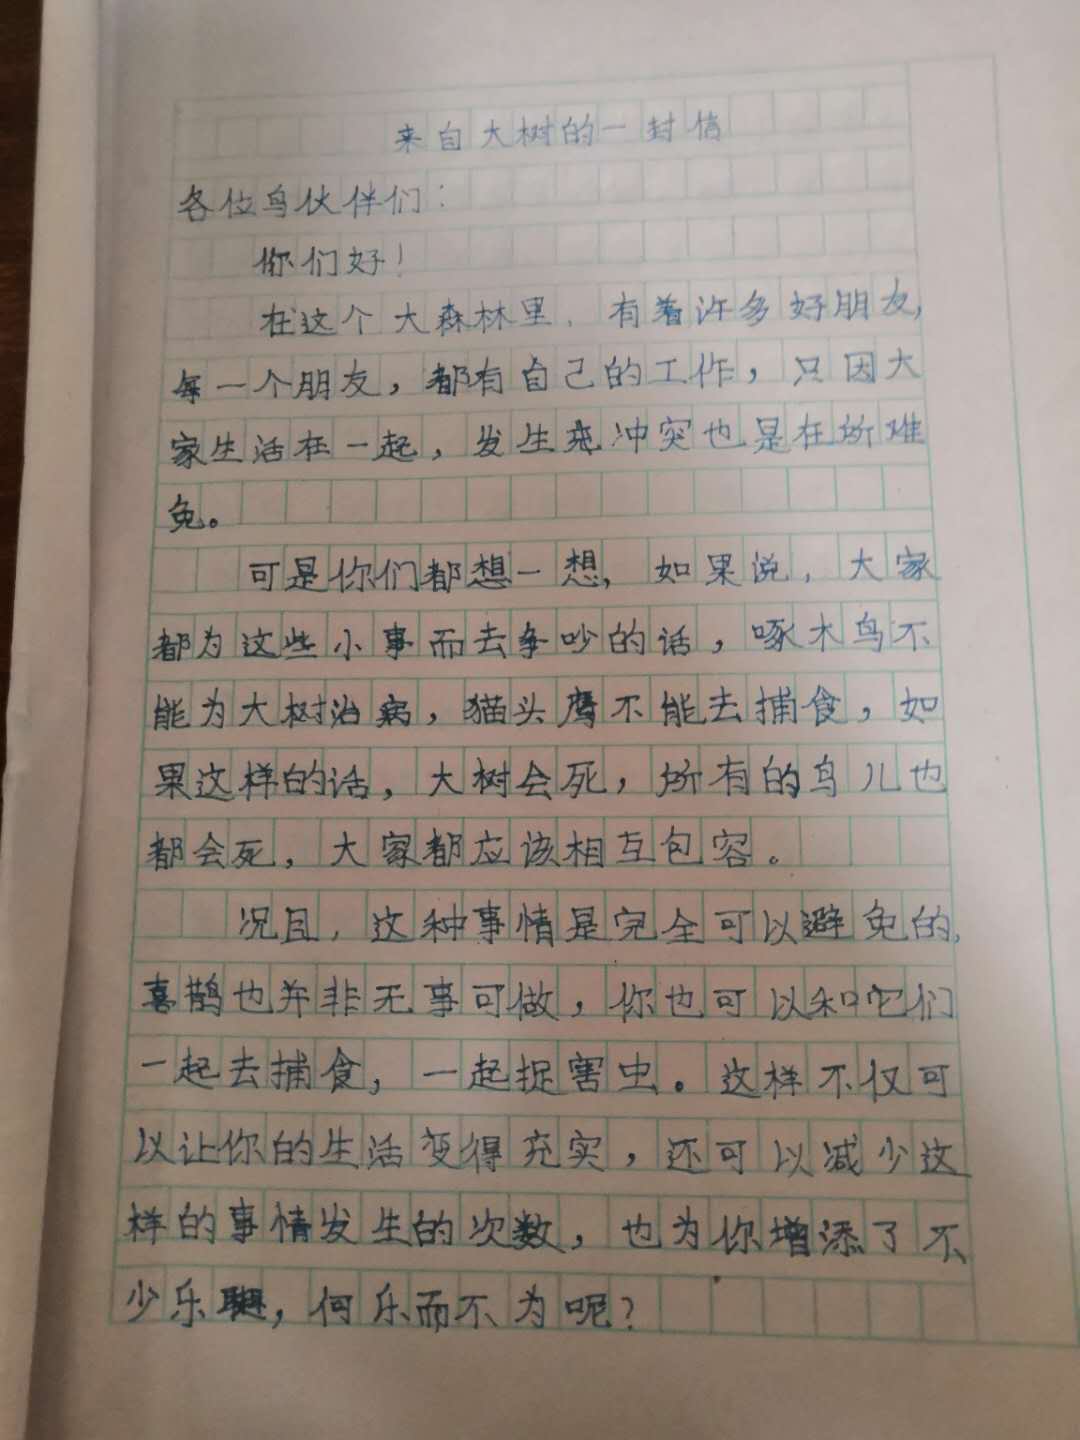 来自大树的一封信
各位鸟伙伴们：
你们好！
在这个大森林里，有着许多好朋友，
每一个朋友，都有自己的工作，只因大
家生活在一起，发生充冲突也是在所难
免。
可是你们都想一想，如果说，大家
都为这些小事而去争吵的话，啄木鸟不
能为大树治病，猫头鹰不能去捕食，如
果这样的话，大树会死，所有的鸟儿也
都会死，大家都应该相互包容。
况且，这种事情是完全可以避免的，
喜鹊也并非无事可做，你也可以和它们
一起去捕食，一起捉害虫。这样不仅可
以让你的生活变得充实，还可以减少这
样的事情发生的次数，也为你增添了不
少乐，何乐而不为呢？